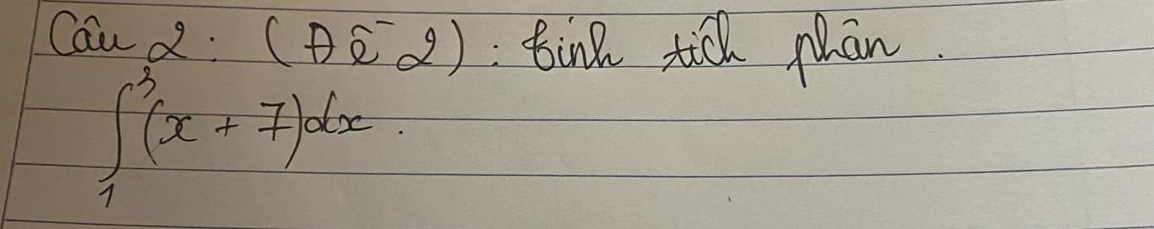 Câu 2: (Đề 2): tính tích phân.
∫₁³ (x + 7)dx.